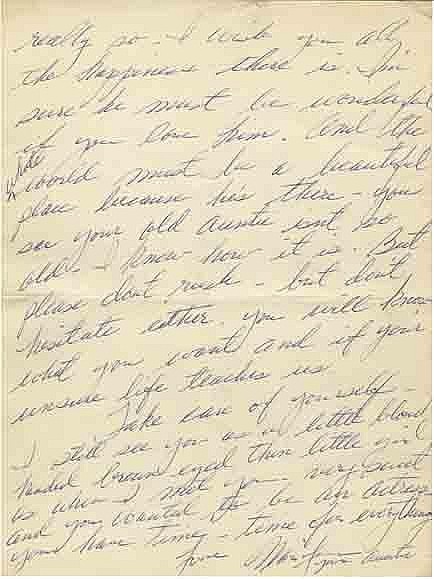 really so - I wish you all
the happiness there is. I'm
sure he must be wonderful
if you love him. And the
whole
world must be a beautiful
place because he's there - you
see your old auntie isnt so
old - I know how it is. But
please dont rush - but don't
hesitate either. you will know
what you want and if your
unsure life teaches us
Take care of yourself -
I still see you as a little blond
headed brown eyed thin little girl
as when I met you - very sweet
and you wanted to be an actress
you have time - time for everything
love
auntie